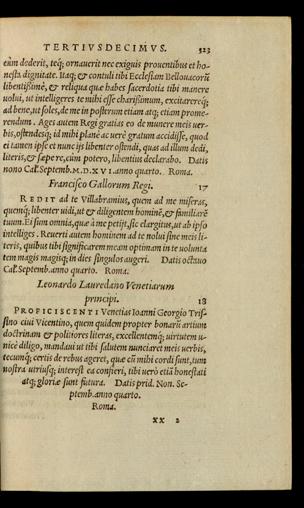 TERTIVSDECIMVS. 523
eũm dederit, teq́; ornauerit nec exiguis prouentibus et ho-
nesta dignitate. Itaq; & contuli tibi Ecclesiam Bellouacorũ
libentissimè, & reliqua quæ habes sacerdotia tibi manere
uolui, ut intelligeres te mihi esse charissimum, excitarercq́;
ad bene, ut soles, de me in posterum etiam atq; etiam prome-
rendum. Ages autem Regi gratias eo de munere meis uer-
bis, ostendesq́; id mihi planè ac uerè gratum accidisse, quod
ei tamen ipse et nunc ijs libenter ostendi, quas ad illum dedi,
literis, & sæpe re, cùm potero, libentius declarabo. Datis
nono Cal. Septemb. M. D. XVI. anno quarto. Roma.
Francisco Gallorum Regi. 17
REDIT ad te Villabramius, quem ad me miseras,
quemq́; libenter uidi, ut & diligentem hominẽ, & familiarẽ
tuum. Ei sum omnia, quæ à me petijt, sic elargitus, ut ab ipso
intelliges. Reuerti autem hominem ad te nolui sine meis li-
teris, quibus tibi significarem meam optimam in te uolunta
tem magis magisq́; in dies singulos augeri. Datis octauo
Cal. Septemb. anno quarto. Roma.
Leonardo Lauredano Venetiarum
principi. 18
PROFICISCENTI Venetias Ioanni Georgio Tris-
sino ciui Vicentino, quem quidem propter bonarũ artium
doctrinam & politiores literas, excellentemq́; uirtutem u-
nicè diligo, mandaui ut tibi salutem nunciaret meis uerbis,
tecumq́; certis de rebus ageret, quæ cũ mihi cordi sunt, tum
nostra utriusq; interest ea confieri, tibi uerò etiã honestati
atq; gloriæ sunt futura. Datis prid. Non. Se-
ptemb. anno quarto.
Roma.
xx 2